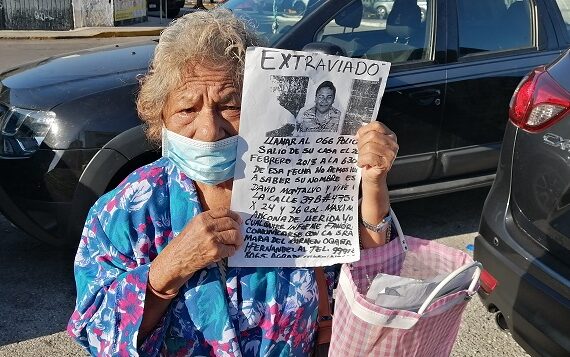 EXTRAVIADO
LLAMAR AL 066 POLICI
SALIO DE SU CASA EL 28
FEBRERO 2013 A 630
DE ESA FECHA NO HEMOS
A SABER SU NOMBRE ES
DAVID MONTALVO Y VIVE
LA CALLE 37B #475
X 24 Y 26 COL MAXIM
ANCONA DE MERIDA YU
CUALQUIER INFORME FAVOR
COMUNICARSE CON LA SRA
MARIA DEL CARMEN
FERNANDEZ AL TEL 999